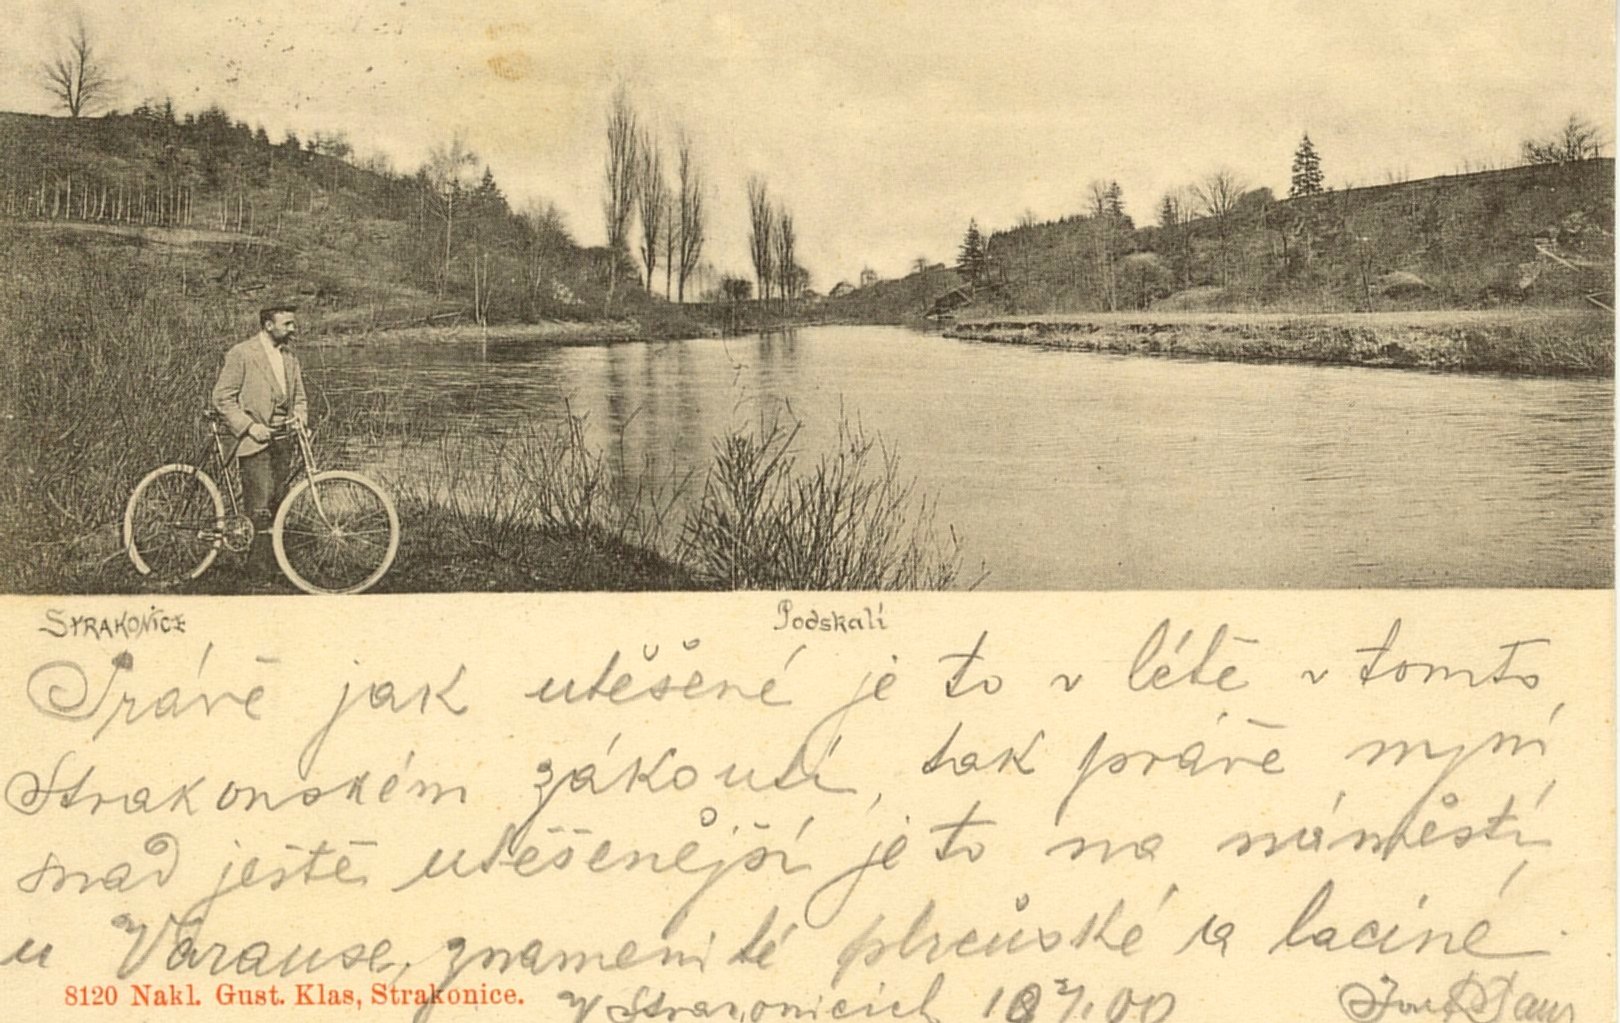 STRAKONICE
Podskalí
Právě jak utěšené je to v létě v tomto
Strakonském zákoutí, tak právě nyní
snad ještě utěšenější je to na náměstí,
u Varause, znamenité plzeňské a laciné
8120 Nakl. Gust. Klas, Strakonice.
V Strakonicích